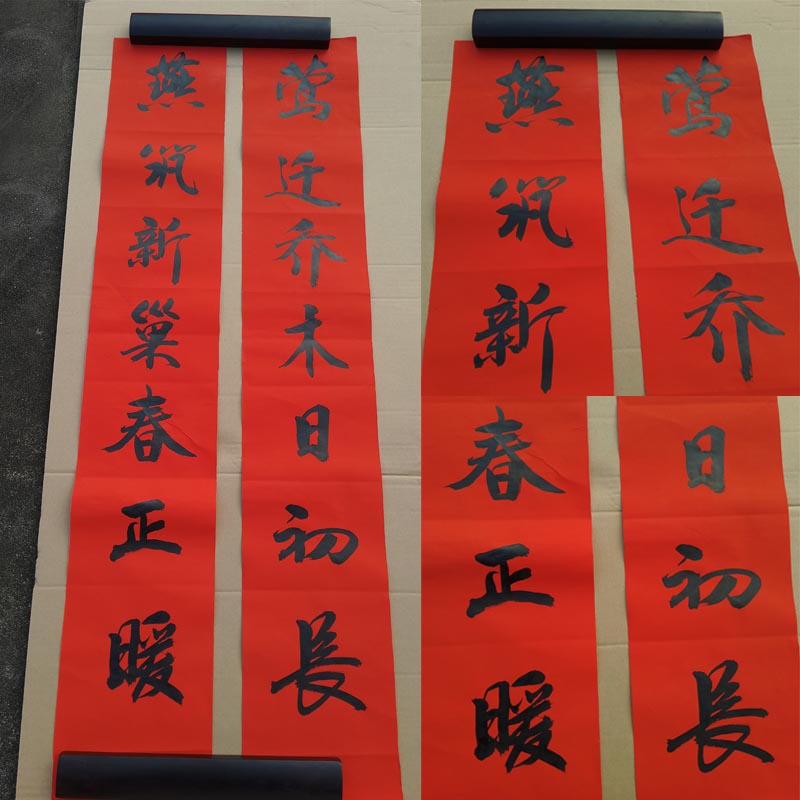 莺迁乔木日初長
燕筑新巢春正暖
莺迁乔
燕筑新
日初長
春正暖